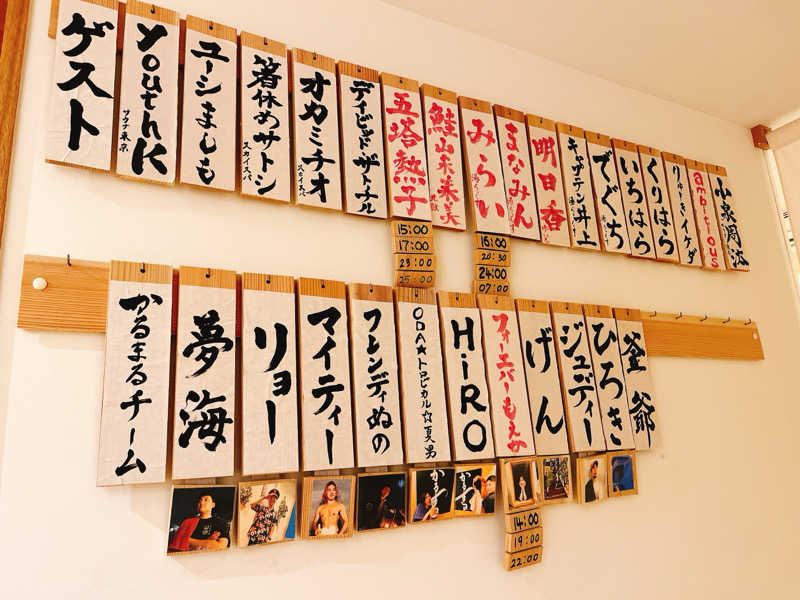 ゲスト
youthK
サウナ東京
ユーシましも
箸休めサトシ
スカイスパ
オカミチオ
スカイスパ
デイビッドザトチル
五塔熱子
鮭山未来美
みらい
まなみん
明日香
キャプテン井上
でぐち
いちはら
くりはら
りゅーきイケダ
ambitious
小泉周汰
15:00
17:00
23:00
25:00
16:00
20:30
24:00
07:00
かるまるチーム
夢海
リョー
マイティー
フレンディぬの
ODA★トロピカル☆夏男
HiRO
フォーエバーもえか
げん
ジュディー
ひろき
釜爺
14:00
19:00
22:00